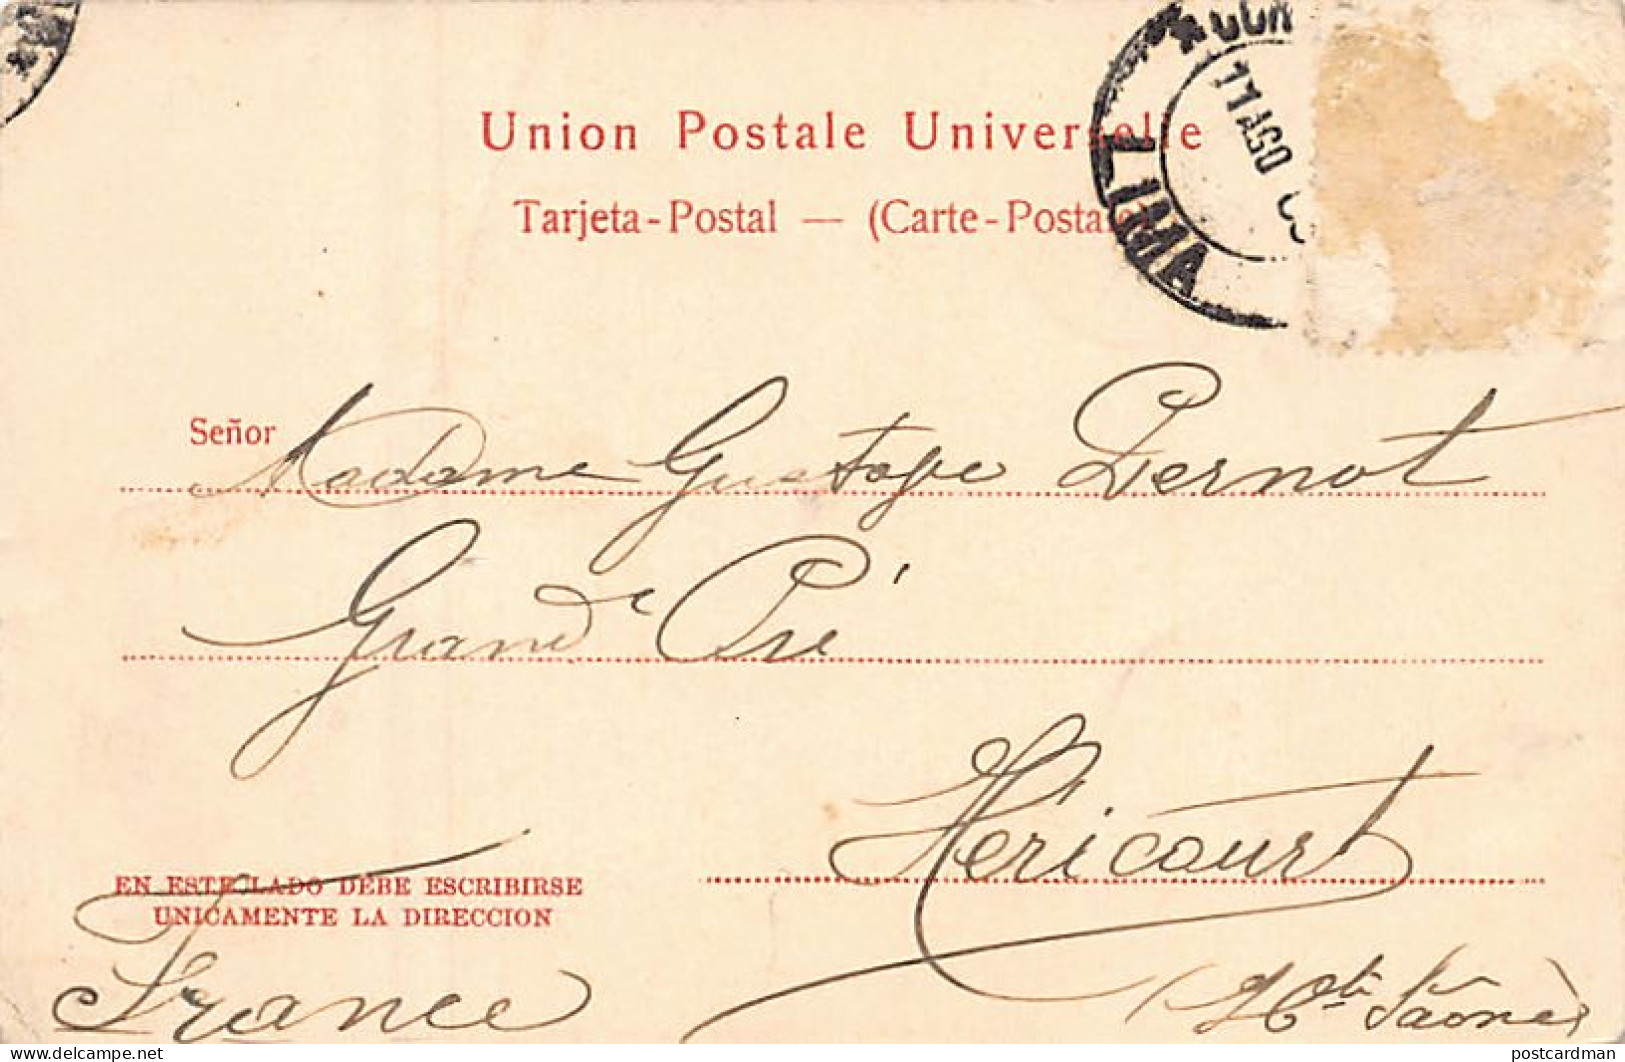 Union Postale Universelle
Tarjeta-Postal — (Carte-Postale)
LIMA
11 AGO
Señor Madame Gustave Pernot
Grand Pré
Héricourt
EN ESTE LADO DEBE ESCRIBIRSE
UNICAMENTE LA DIRECCION
France
(Hte Saône)
delcampe.net
postcardman